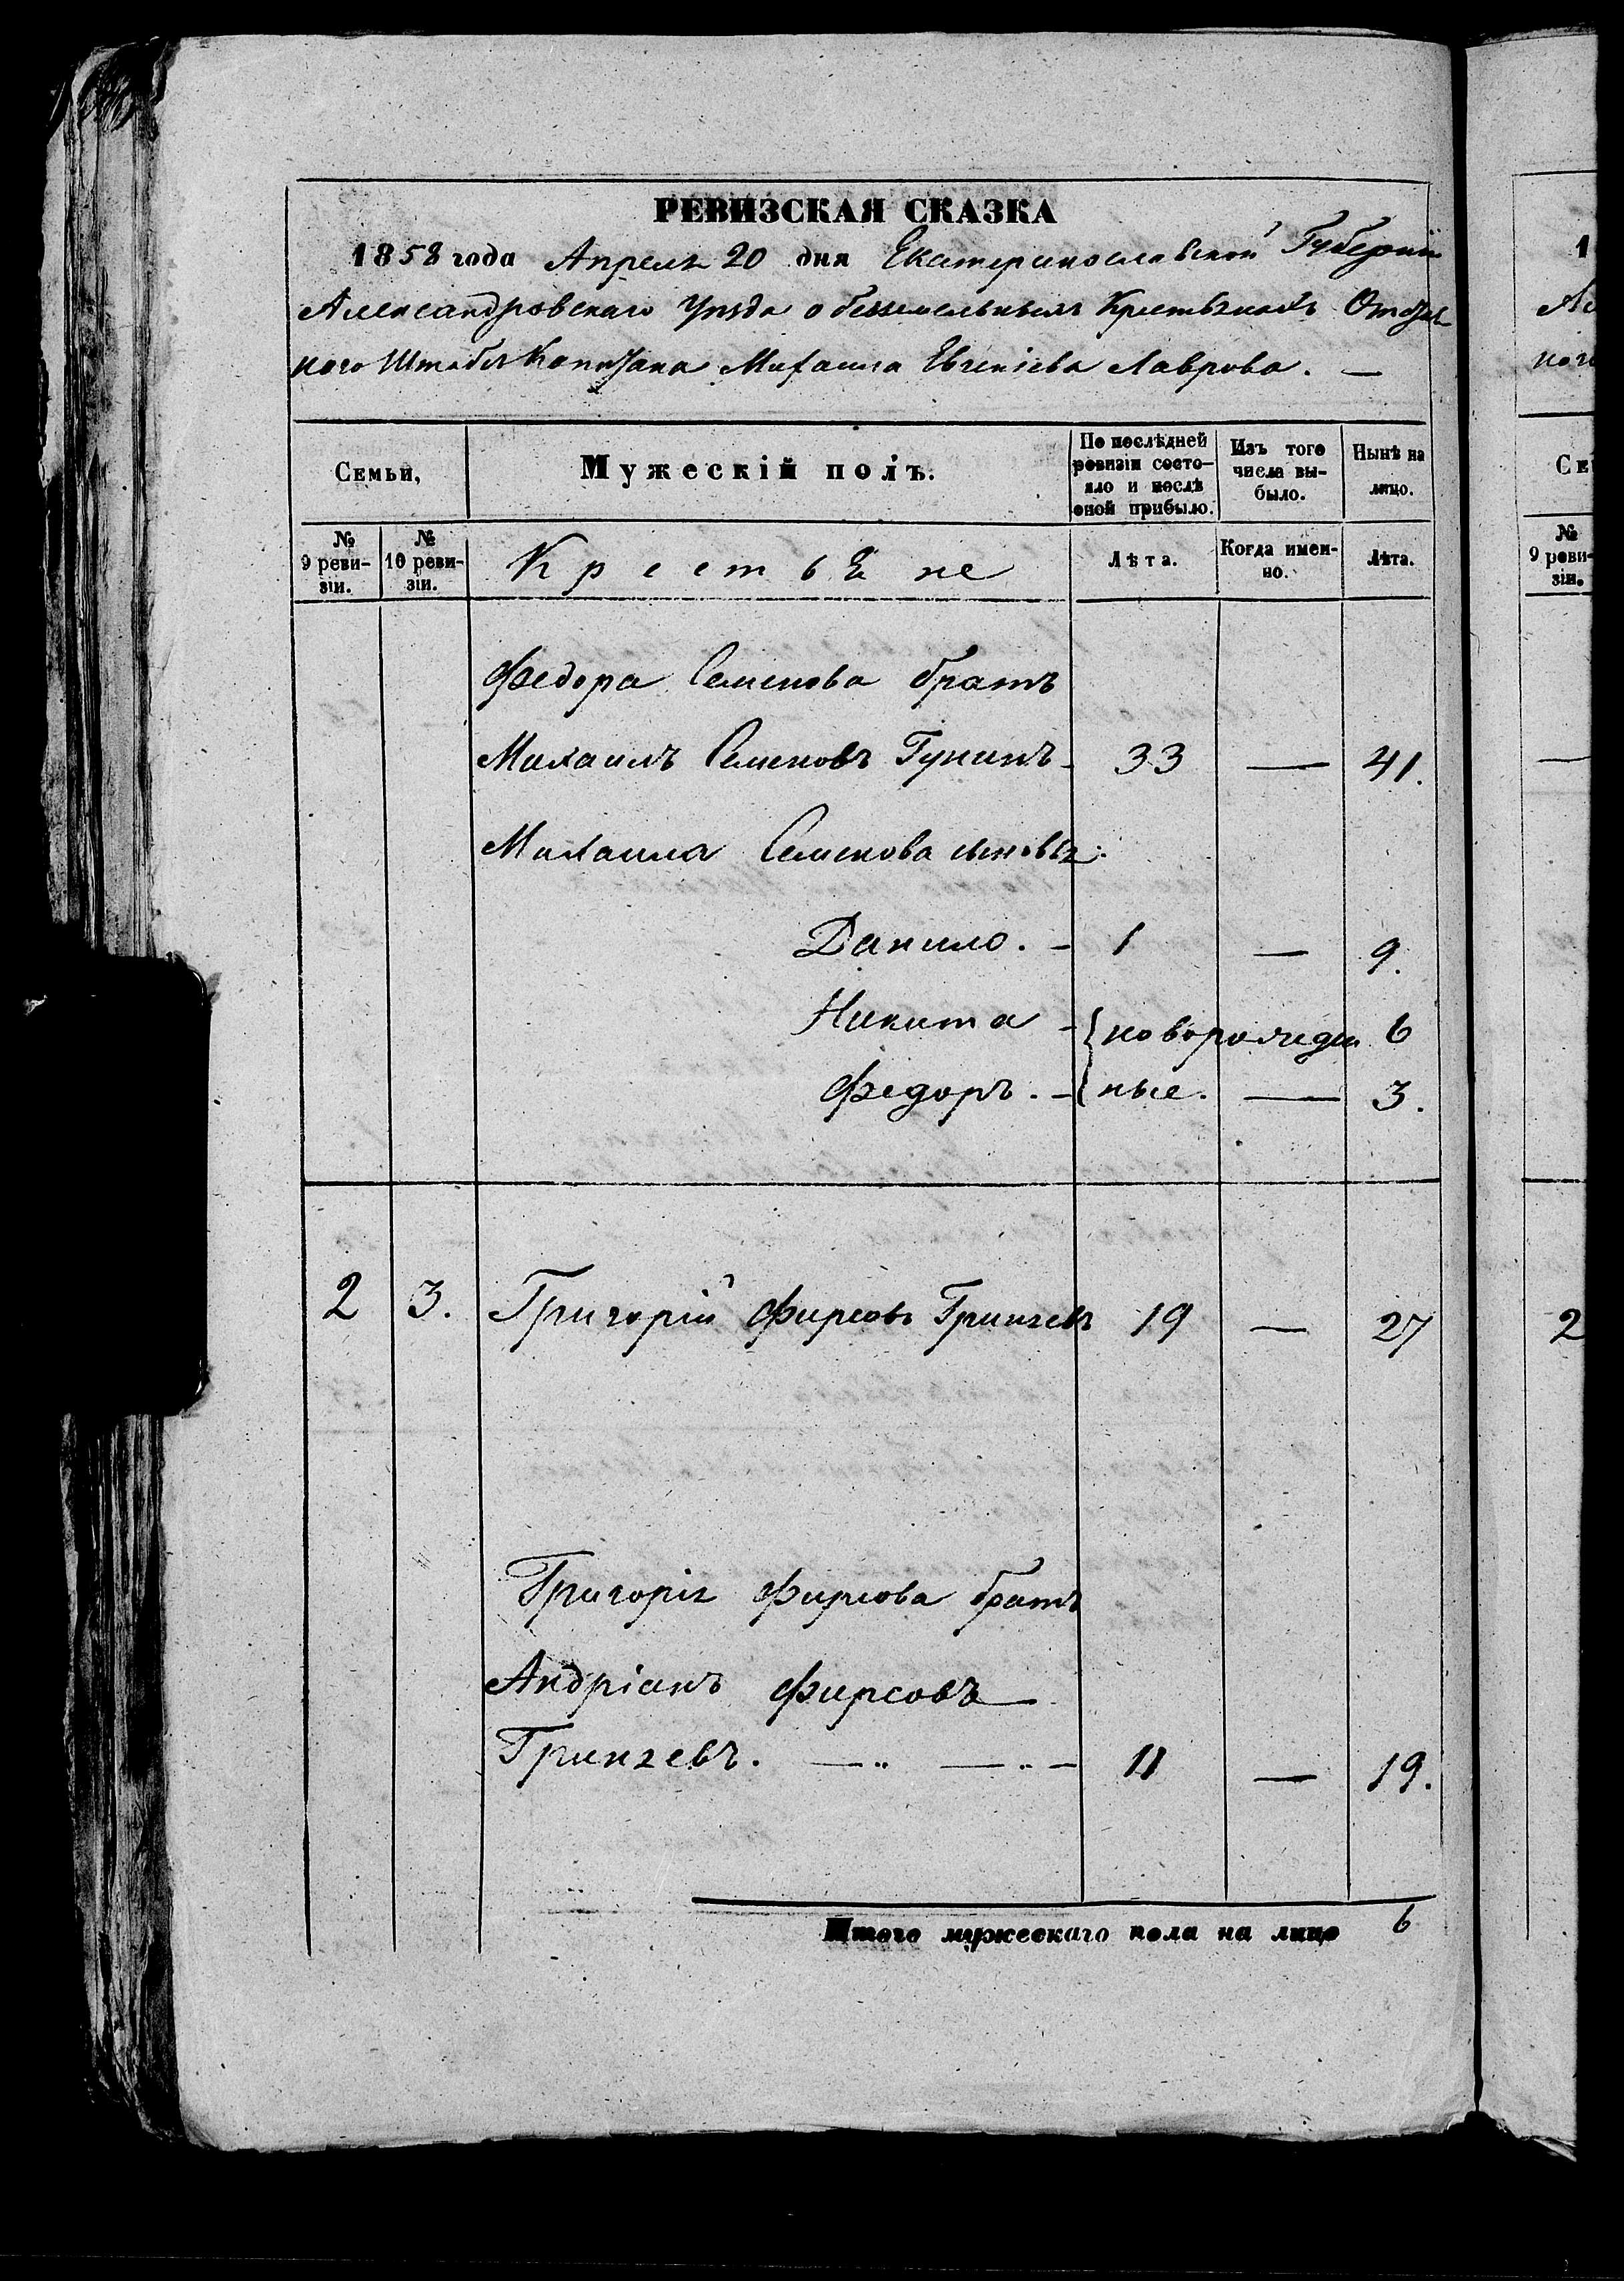 РЕВИЗСКАЯ СКАЗКА
1858 года Апреля 20 дня Екатеринославской Губерніи
Александровскаго Уѣзда о безземельныхъ Крестьянахъ Отстав
ного Штабсъ Капитана Михаила Евгеніева Лаврова. —
Семьи,
Мужескій полъ.
По послѣдней ревизіи состо-
яло и послѣ
оной прибыло.
Изъ того
числа вы-
было.
Нынѣ на
лицо.
№
9 реви-
зіи.
№
10 реви-
зіи.
Крестьяне
Лѣта.
Когда имен-
но.
Лѣта.
Федора Семенова братъ
Михаилъ Семеновъ Гунинъ - 33 — 41.
Михаила Семенова сыновья:
Данило. - 1 — 9.
Никита - новорожден 6
Федоръ. - ные. — 3.
2 3. Григорій Фирсовъ Гринчевъ 19 — 27
Григорія Фирсова братъ
Андріанъ Фирсовъ
Гринчевъ. 11 — 19.
Итого мужескаго пола на лицо 6
1
но
Се
№
9 реви-
зіи.
—
2